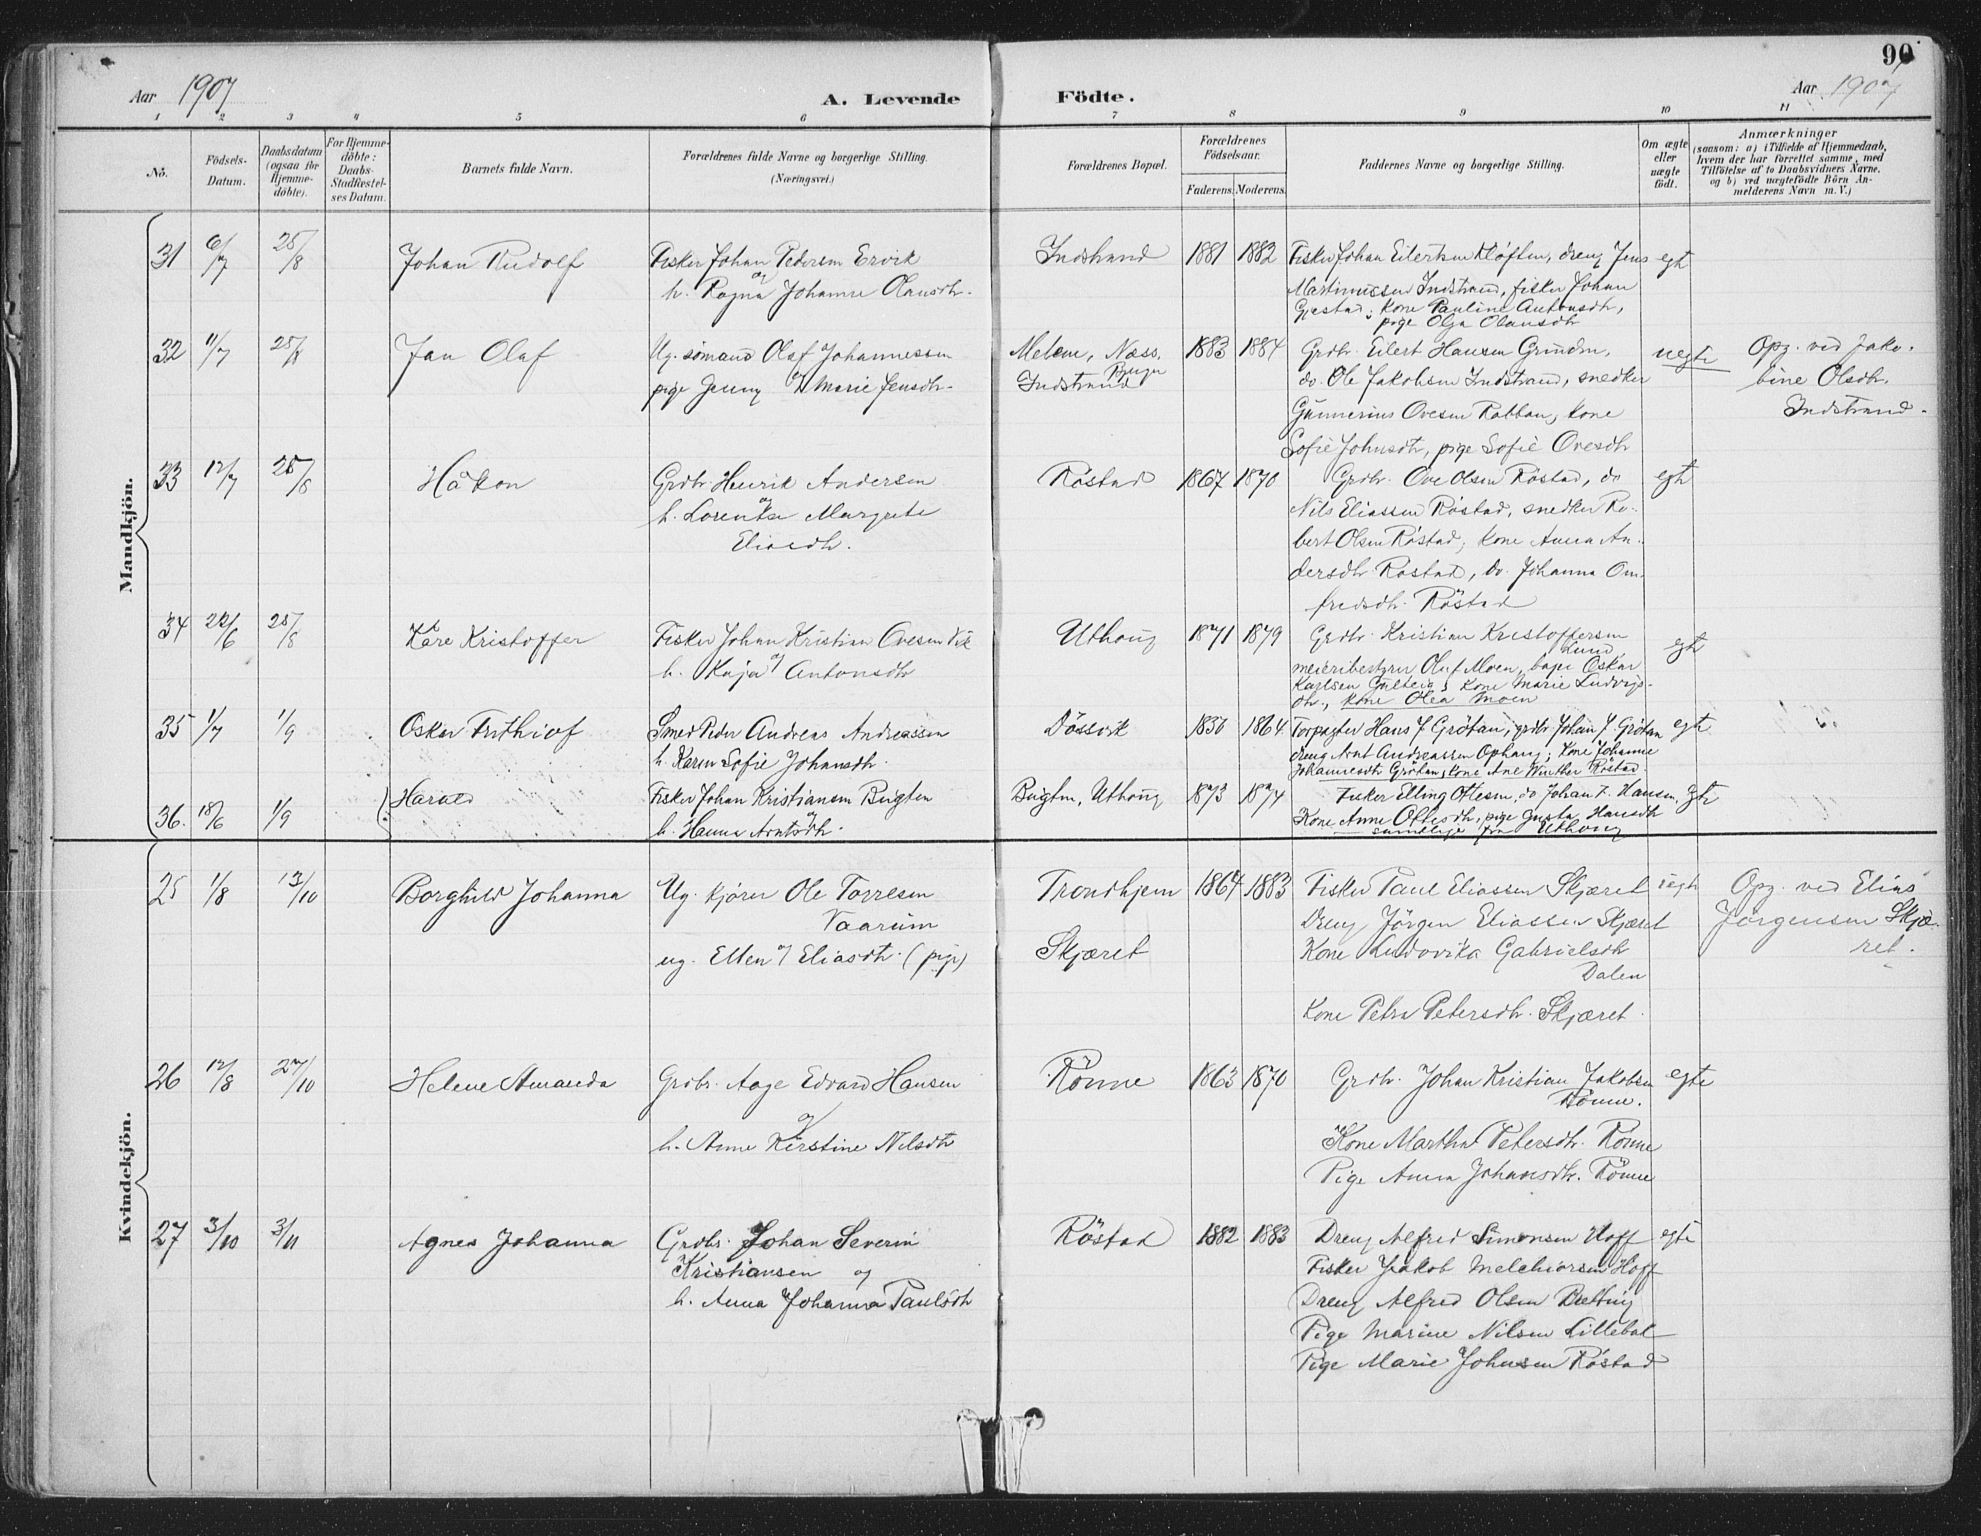 90
Aar 1907
A. Levende
Födte.
Aar 1907
1 2 3 4 5 6 7 8 9 10 11
No.
Födsels-
Datum.
Daabsdatum
(ogsaa for
Hjemme-
döbte).
For Hjemme-
döbte:
Daabs-
Stadfæstel-
ses Datum.
Barnets fulde Navn.
Forældrenes fulde Navne og borgerlige Stilling.
(Næringsvei.)
Forældrenes Bopæl.
Forældrenes
Födselsaar.
Faderens. Moderens.
Faddernes Navne og borgerlige Stilling.
Om ægte
eller
uægte
födt.
Anmærkninger
(saasom: a) i Tilfælde af Hjemmedaab,
hvem der har forrettet samme, med
Tilföielse af to Daabsvidners Navne,
og b) ved uægtefödte Börn An-
melderens Navn m. V.)
Mandkjön.
31 6/7 25/8 Johan Rudolf
Fisker Johan Pedersen Ervik
og
h. Ragna Johanne Olausdtr.
Indstrand 1881 1882
Fisker Johan Eilertsen Kløften, dreng Jens
Martinussen Indstrand, fisker Johan
Gjestad; kone Pauline Antonsdtr,
pige Olga Olausdtr
egte
32 11/7 25/8 Jan Olaf
Ug. sømand Olaf Johannessen
og
pige Jenny Marie Jensdtr.
Melem, Næss,
Indstrand
1883 1884
Grdbr. Eilert Hansen Grunden,
do Ole Jakobsen Indstrand, snedker
Gunnerius Ovesen Rabben, kone
Sofie Johnsdtr, pige Sofie Ovesdtr
uegte
Opg. ved Jako-
bine Olsdtr.
Indstrand.
33 12/7 25/8 Håkon
Grdbr. Henrik Andersen
og
h. Lorentse Margrete
Eliasdtr.
Röstad 1867 1870
Grdbr. Ove Olsen Röstad, do
Nils Eliassen Röstad, snedker Ro-
bert Olsen Röstad; kone Anna An-
dersdtr. Röstad, do. Johanna Om-
fredsdtr. Röstad
egte
34 22/6 25/8 Kåre Kristoffer
Fisker Johan Kristian Ovesen Vik
og
h. Kaja Antonsdtr
Uthoug 1871 1879
Grdbr. Kristian Kristoffersen
Lund,
meieribestyrer Oluf Moen, bager Oskar
Karlsen Galten; kone Marie Ludvigs-
dtr., kone Olea Moen
egte
35 1/7 1/9 Oskar Frithiof
Smed Peder Andreas Andreassen
h. Karen Sofie Johansdtr.
Dössvik 1850 1864
Forpagter Hans J Grötan, grdbr Johan J. Grötan
dreng Arnt Andreassen Ophaug; kone Johanne
Johannesdtr Grötan, kone Ane Winther Röstad.
egte
36. 18/6 1/9 Harald
Fisker Johan Kristiansen Bugten
og
h. Hanna Arntsdtr.
Bugten, Uthoug 1873 1874
Fisker Elling Ottesen, do Johan F. Hansen,
Kone Anne Ottesdtr, pige Gusta Hansdtr
samtlige fra Uthoug
egte
Kvindekjön.
25 1/8 13/10 Borghild Johanna
Ug. kjörer Ole Torresen
Vaarum
ug. Ellen Eliasdtr. (pige)
Trondhjem
Skjæret
1864 1883
Fisker Paul Eliassen Skjæret
Dreng Jörgen Eliassen Skjæret
Kone Ludovika Gabrielsdtr
Dalen
Kone Petra Petersdtr. Skjæret.
uegte
Opg. ved Elias
Jörgensen Skjæ-
ret.
26 12/8 27/10 Helene Amanda
Grdbr. Aage Edvard Hansen
og
h. Anne Kirstine Nilsdtr
Rönne 1863 1870
Grdbr. Johan Kristian Jakobsen
Rönne.
Kone Martha Petersdtr. Rönne
Pige Anna Johansdtr. Rönne
egte
27 3/10 3/11 Agnes Johanna
Grdbr. Johan Severin
Kristiansen og
h. Anna Johanna Paulsdtr
Röstad 1882 1883
Dreng Alfred Simonsen Hoff
Fisker Jakob Melchiorsen Hoff
Dreng Alfred Olsen Bretting
Pige Marine Nilsen Lillebal
Pige Marie Johnsen Röstad
egte